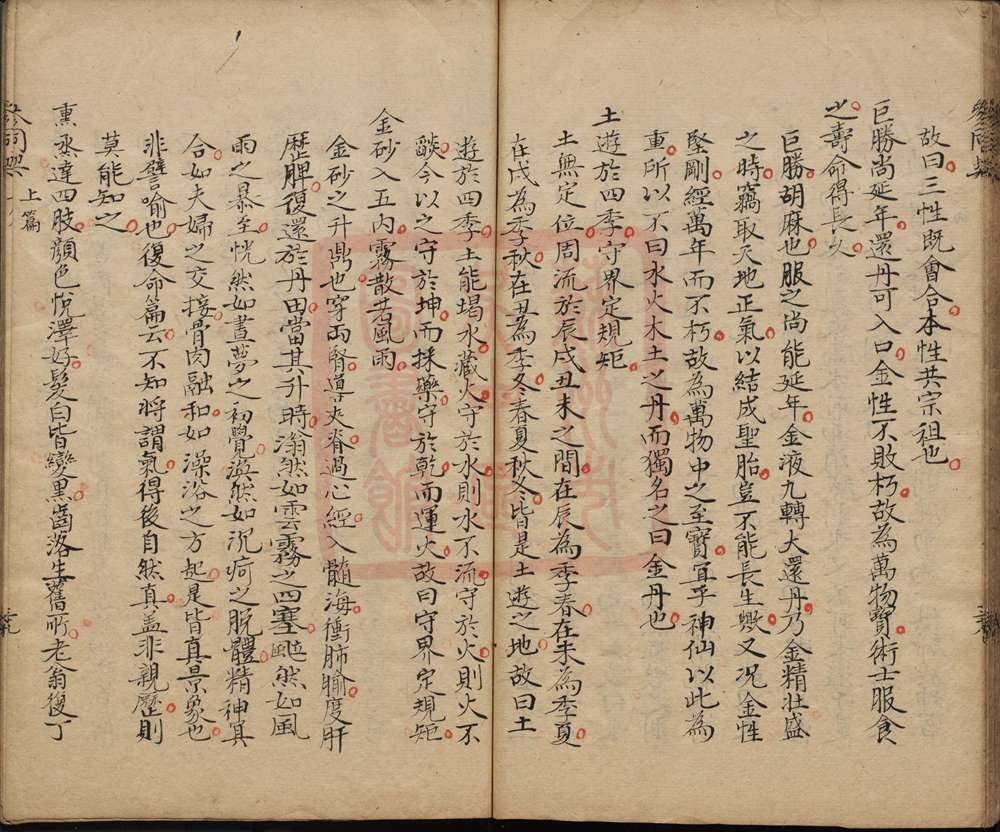 故曰三性既會合本性共宗祖也
巨勝尚延年還丹可入口金性不敗朽故為萬物寶術士服食
之壽命得長久
巨勝胡麻也服之尚能延年金液九轉大還丹乃金精壯盛
之時竊取天地正氣以結成聖胎豈不能長生歟又况金性
堅剛經萬年而不朽故為萬物中之至寶宜乎神仙以此為
重所以不曰水火木土之丹而獨名之曰金丹也
土遊於四季守界定規矩
土無定位周流於辰戌丑未之間在辰為季春在未為季夏
在戌為季秋在丑為季冬春夏秋冬皆是土遊之地故曰土
遊於四季土能塌水藏火守於水則水不流守於火則火不
燄今以之守於坤而採藥守於乾而運火故曰守界定規矩
金砂入五內霧散若風雨
金砂之升鼎也穿兩腎導夾脊過心經入髓海衝肺腧度肝
歷脾復還於丹田當其升時滃然如雲霧之四塞颯然如風
雨之暴至恍然如晝夢之初覺渙然如沉疴之脫體精神冥
合如夫婦之交接骨肉融和如澡浴之方起是皆真景象也
非譬喻也復命篇云不知將謂氣得後自然真盖非親歷則
莫能知之
熏烝達四肢顏色悅澤好髮白皆變黑齒落生舊所老翁復丁
上篇